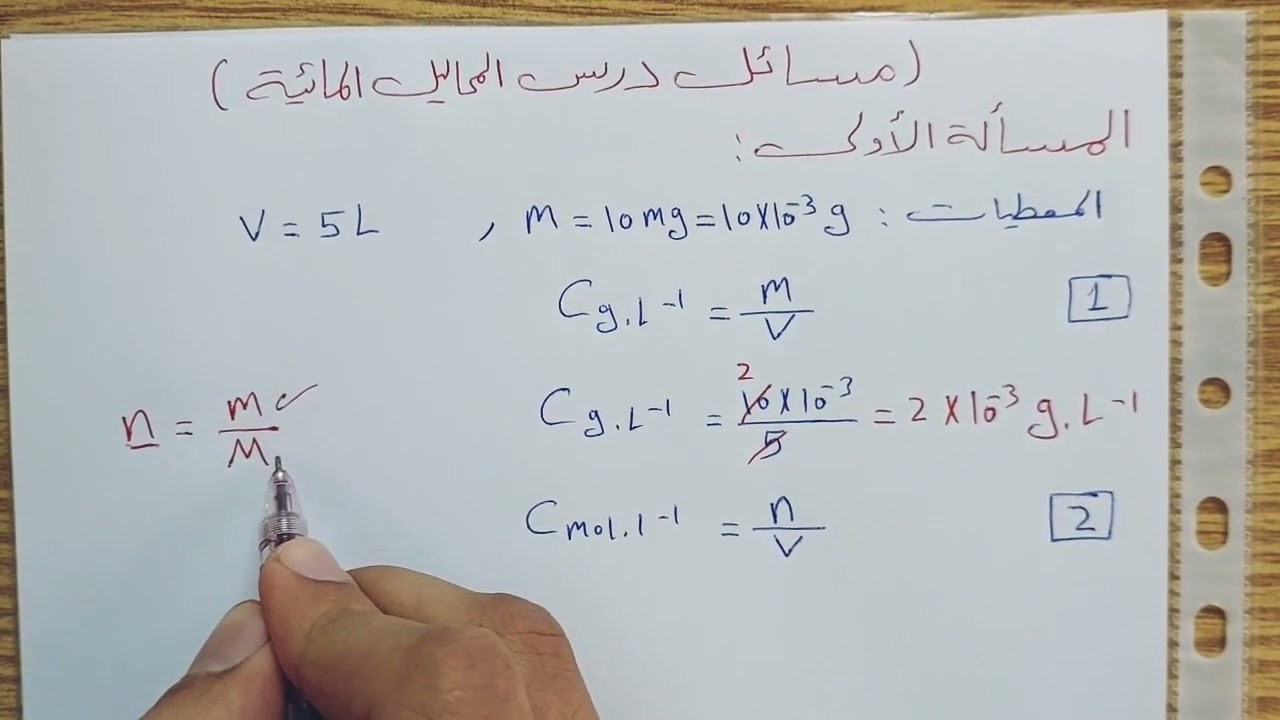 (مسائل درس المحاليل المائية)
المسألة الأولى:
المعطيات: m = 10 mg = 10×10⁻³ g , V = 5 L
1 C g.L⁻¹ = m/V
C g.L⁻¹ = 10×10⁻³/5 = 2×10⁻³ g.L⁻¹
2
2 C mol.l⁻¹ = n/V
n = m/M ✓